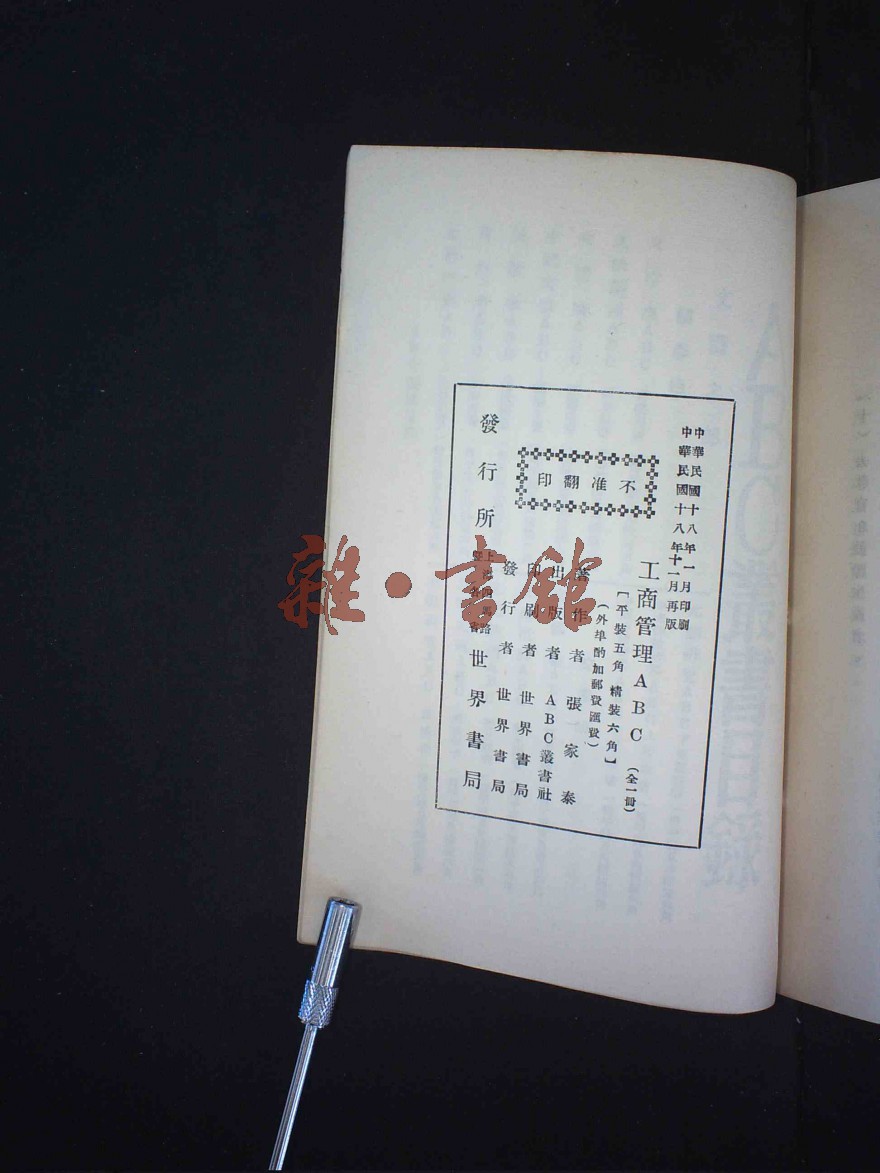 中華民國十八年一月印刷
中華民國十八年十一月再版
工商管理ABC（全一冊）
【平裝五角 精裝六角】
（外埠酌加郵費匯費）
不准翻印
著作者 張家泰
出版者 ABC叢書社
印刷者 世界書局
發行者 世界書局
發行所 上海四馬路 世界書局
雜·書館